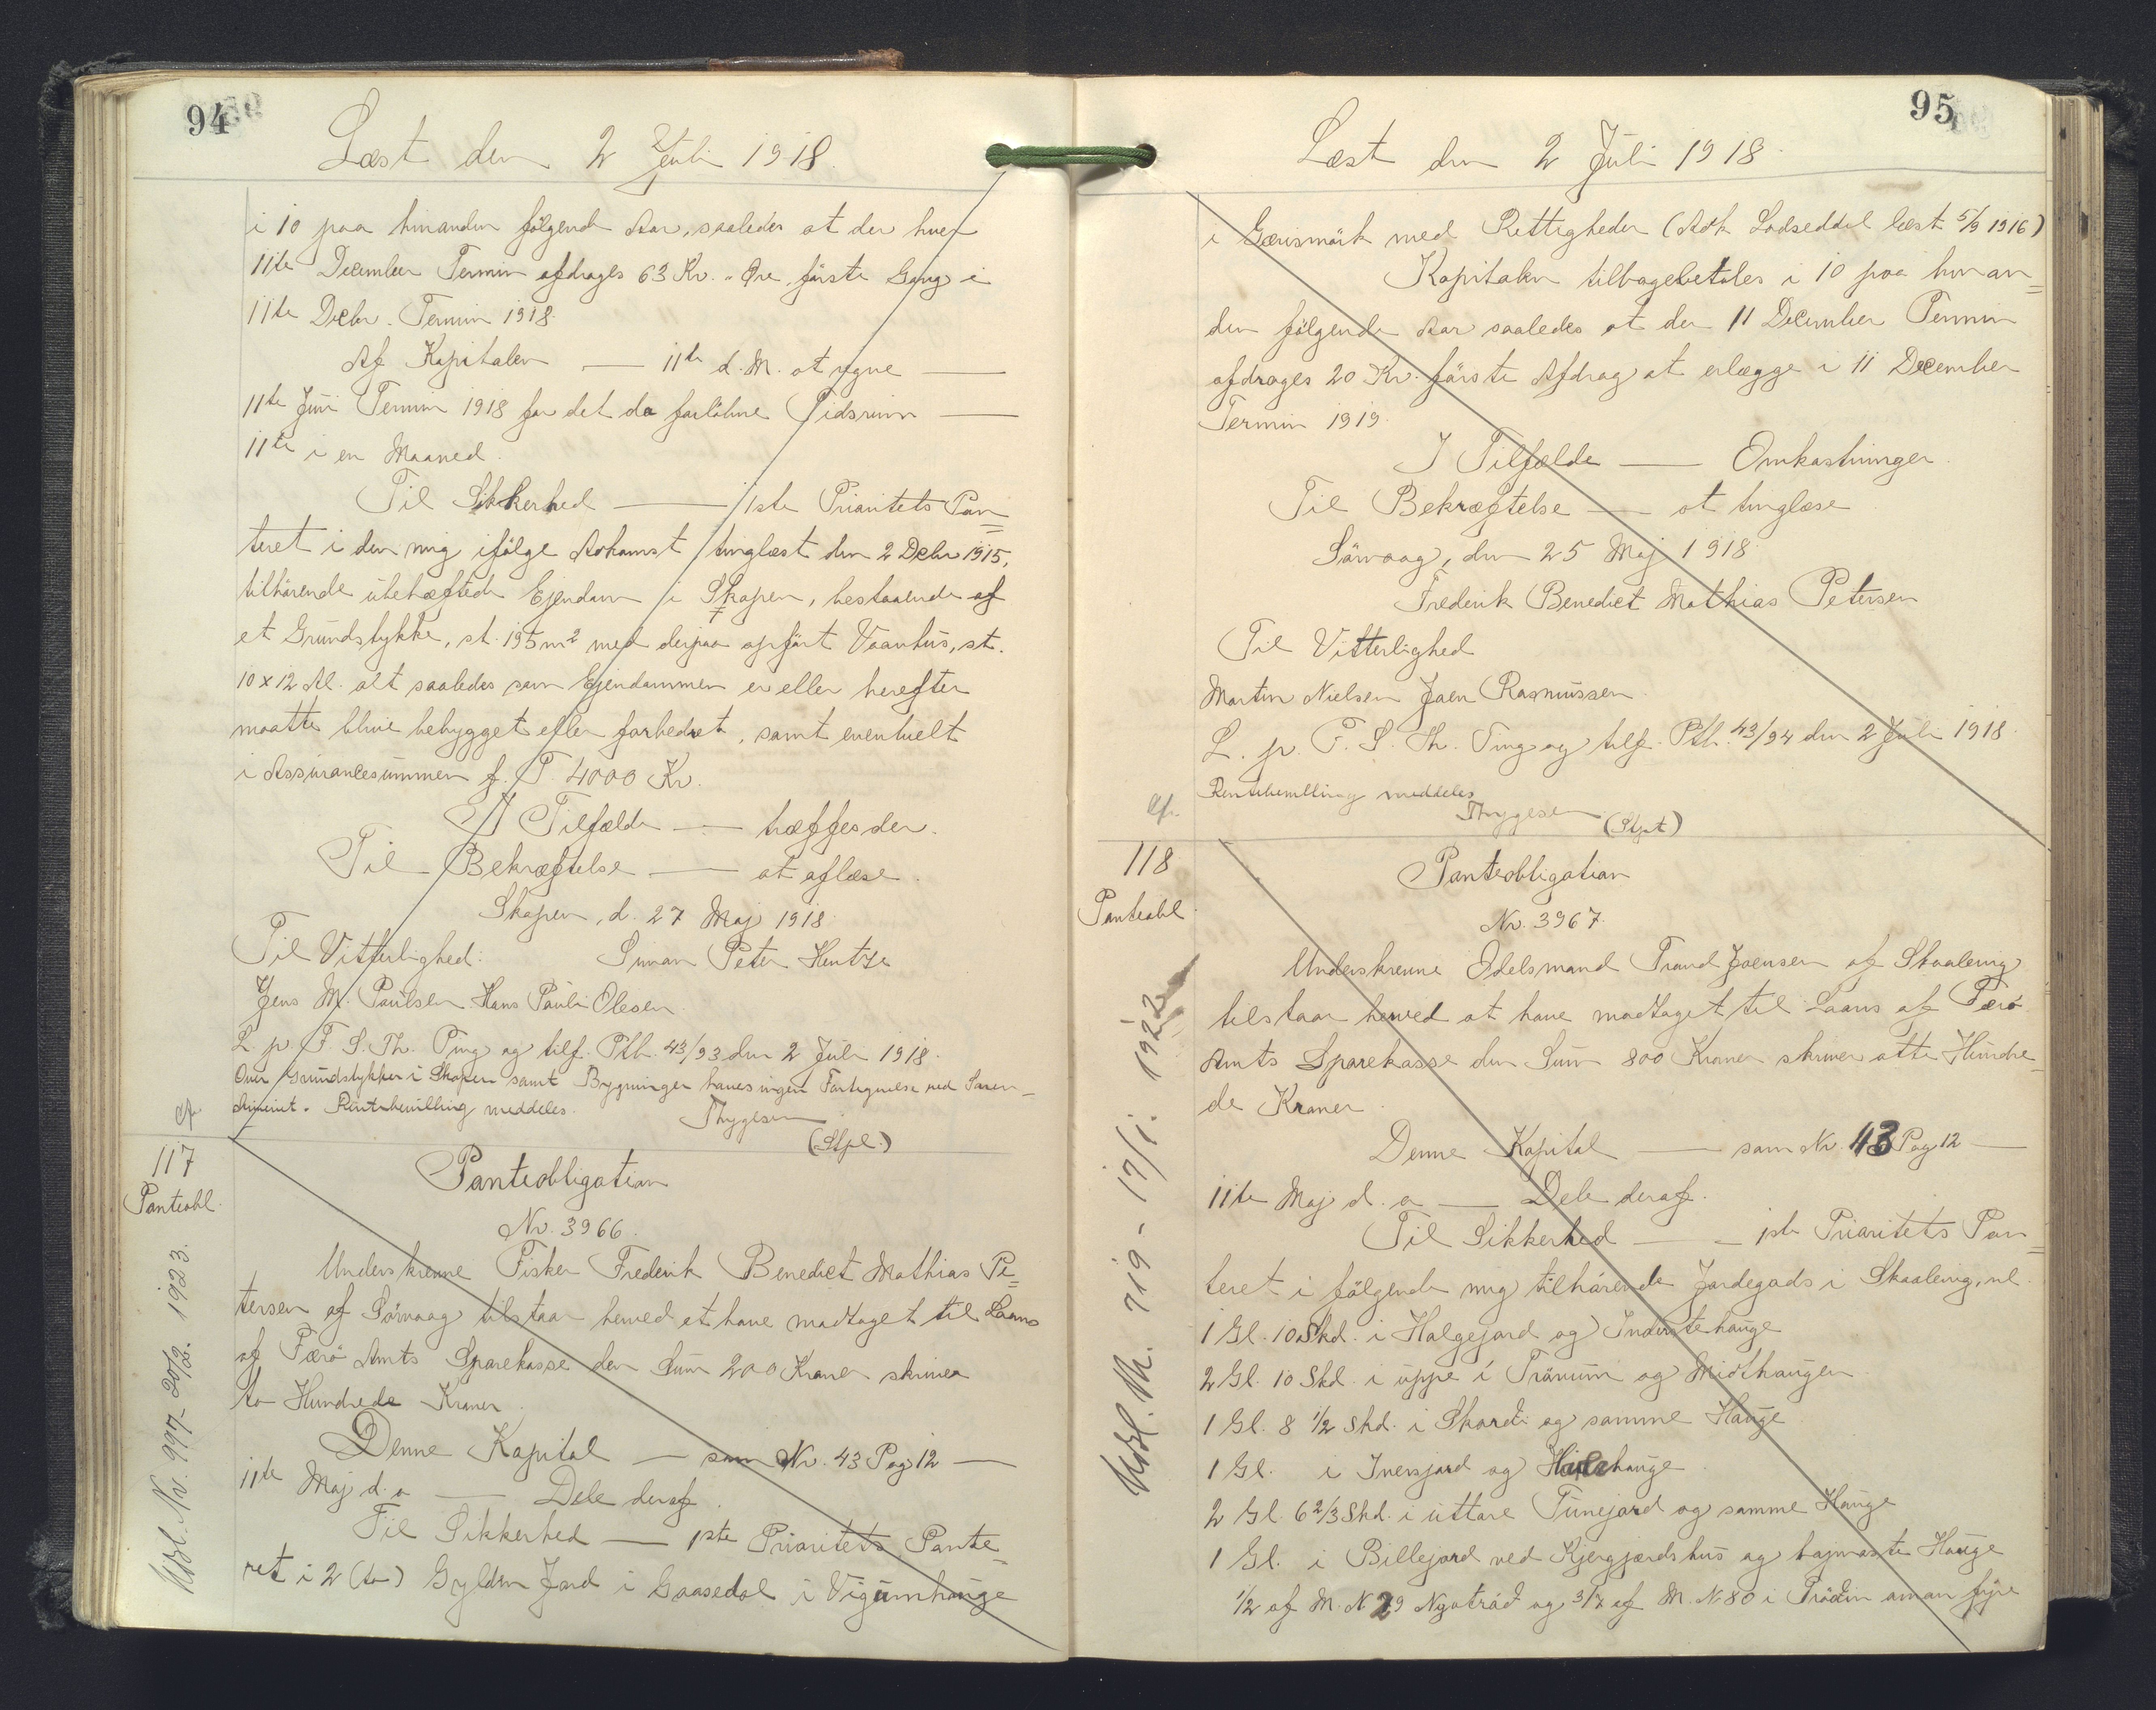 94
Læst den 2 Juli 1918.
i 10 paa hinanden følgende Aar, saaledes at der hver
11te December Termin afdrages 63 Kr. " Øre, første Gang i
11te Decbr. Termin 1918.
Af Kapitalen — 11te d. M. at regne —
11te Juni Termin 1918 for det da forløbne Tidsrum —
11te i en Maaned.
Til Sikkerhed — 1ste Prioritets Pan=
teret i den mig ifølge Adkomst tinglæst den 2 Debr 1915,
tilhørende ubehæftede Ejendom i Skopen, bestaaende af
et Grundstykke, st. 195 m² med derpaa opført Vaanhus, st.
10 x 12 Al. alt saaledes som Ejendommen er eller herefter
maatte blive bebygget eller forbedret, samt eventuelt
i Assurancesummen f. T. 4000 Kr.
I Tilfælde — træffes der.
Til Bekræftelse — at aflæse.
Skopen, d. 27 Maj 1918.
Til Vitterlighed: Simon Peter Hentze
Jens M. Poulsen. Hans Pauli Olesen
L. p. F. S. Th. Ting og tilf. Ptb. 43/93 den 2 Juli 1918.
Over Grundstykker i Skopen samt Bygninger haves ingen Fortegnelse ved Soren=
skriveriet. Rentebevilling meddeles.
Thygesen
(Stpl.)
cf.
117
Panteobl.
Udsl. Nr. 997 - 20/2. 1923.
Panteobligation
Nr. 3966.
Underskrevne Fisker Frederik Benedict Mathias Pe=
tersen af Sörvaag tilstaar herved at have modtaget til Laans
af Færø Amts Sparekasse den Sum 200 Kroner skriver
to Hundrede Kroner.
Denne Kapital — som Nr. 43 Pag 12 —
11te Maj d. a — Dele deraf.
Til Sikkerhed — 1ste Prioritets Pante=
ret i 2 (to) Gylden Jord i Gaasedal i Vigumhauge
95
Læst den 2 Juli 1918.
i Gærismörk med Rettigheder (Adk Lodseddel læst 5/9 1916)
Kapitalen tilbagebetales i 10 paa hinan=
den følgende Aar saaledes at der 11 December Termin
afdrages 20 Kr. første Afdrag at erlægge i 11 December
Termin 1919.
I Tilfælde — Omkostninger.
Til Bekræftelse — at tinglæse
Sörvaag, den 25 Maj 1918.
Frederik Benedict Mathias Petersen
Til Vitterlighed
Martin Nielsen Joen Rasmussen.
L. p. F. S. Th. Ting og tilf. Ptb. 43/94 den 2 Juli 1918.
Rentebevilling meddeles
Thygesen
(Stpl)
cf.
118
Panteobl.
Udsl. Nr. 719 - 17/1. 1922
Panteobligation
Nr. 3967.
Underskrevne Odelsmand Trond Joensen af Skaalevig
tilstaar herved at have modtaget til Laans af Færø
Amts Sparekasse den Sum 800 Kroner skriver otte Hundre=
de Kroner.
Denne Kapital — som Nr. 43 Pag 12 —
11te Maj d. a — Dele deraf.
Til Sikkerhed — 1ste Prioritets Pan=
teret i følgende mig tilhørende Jordegods i Skaalevig, nl.
1 Gl. 10 Skd. i Halgejord og Inderstehauge
2 Gl. 10 Skd. i uppe i Trönum og Midthaugen
1 Gl. 8 1/2 Skd. i Skardi og samme Hauge
1 Gl. i Inersjord og
2 Gl. 6 2/3 Skd. i uttare Tunejord og samme Hauge
1 Gl. i Billejord ved Kjergjordshus og hajmaste Hauge
1/2 af M. N 29 Nyatröd og 3/7 af M. N 80 i Trödin aman fyre